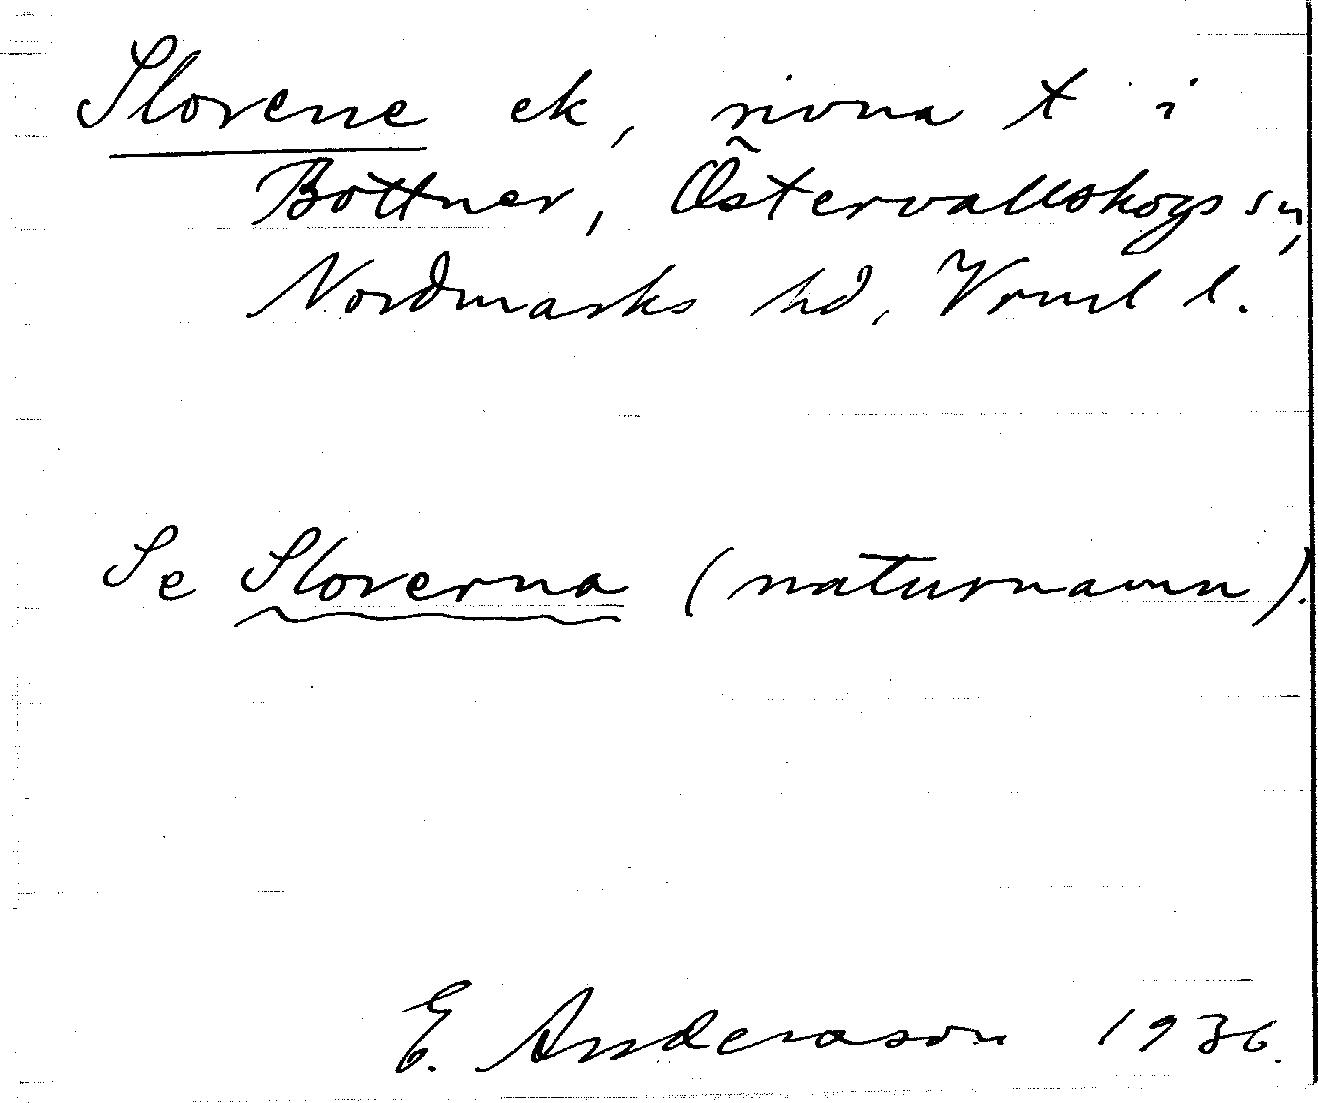 Slovene ek, rivna t i
Bottner, Östervallskogs sn,
Nordmarks hd, Vrml l.
Se Sloverna (naturnamn).
E. Andersson 1936.